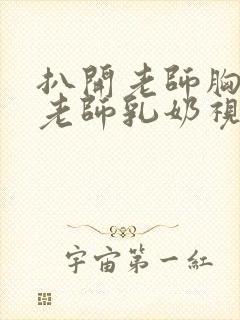 扒開老師胸
老師乳奶視
宇宙第一紅